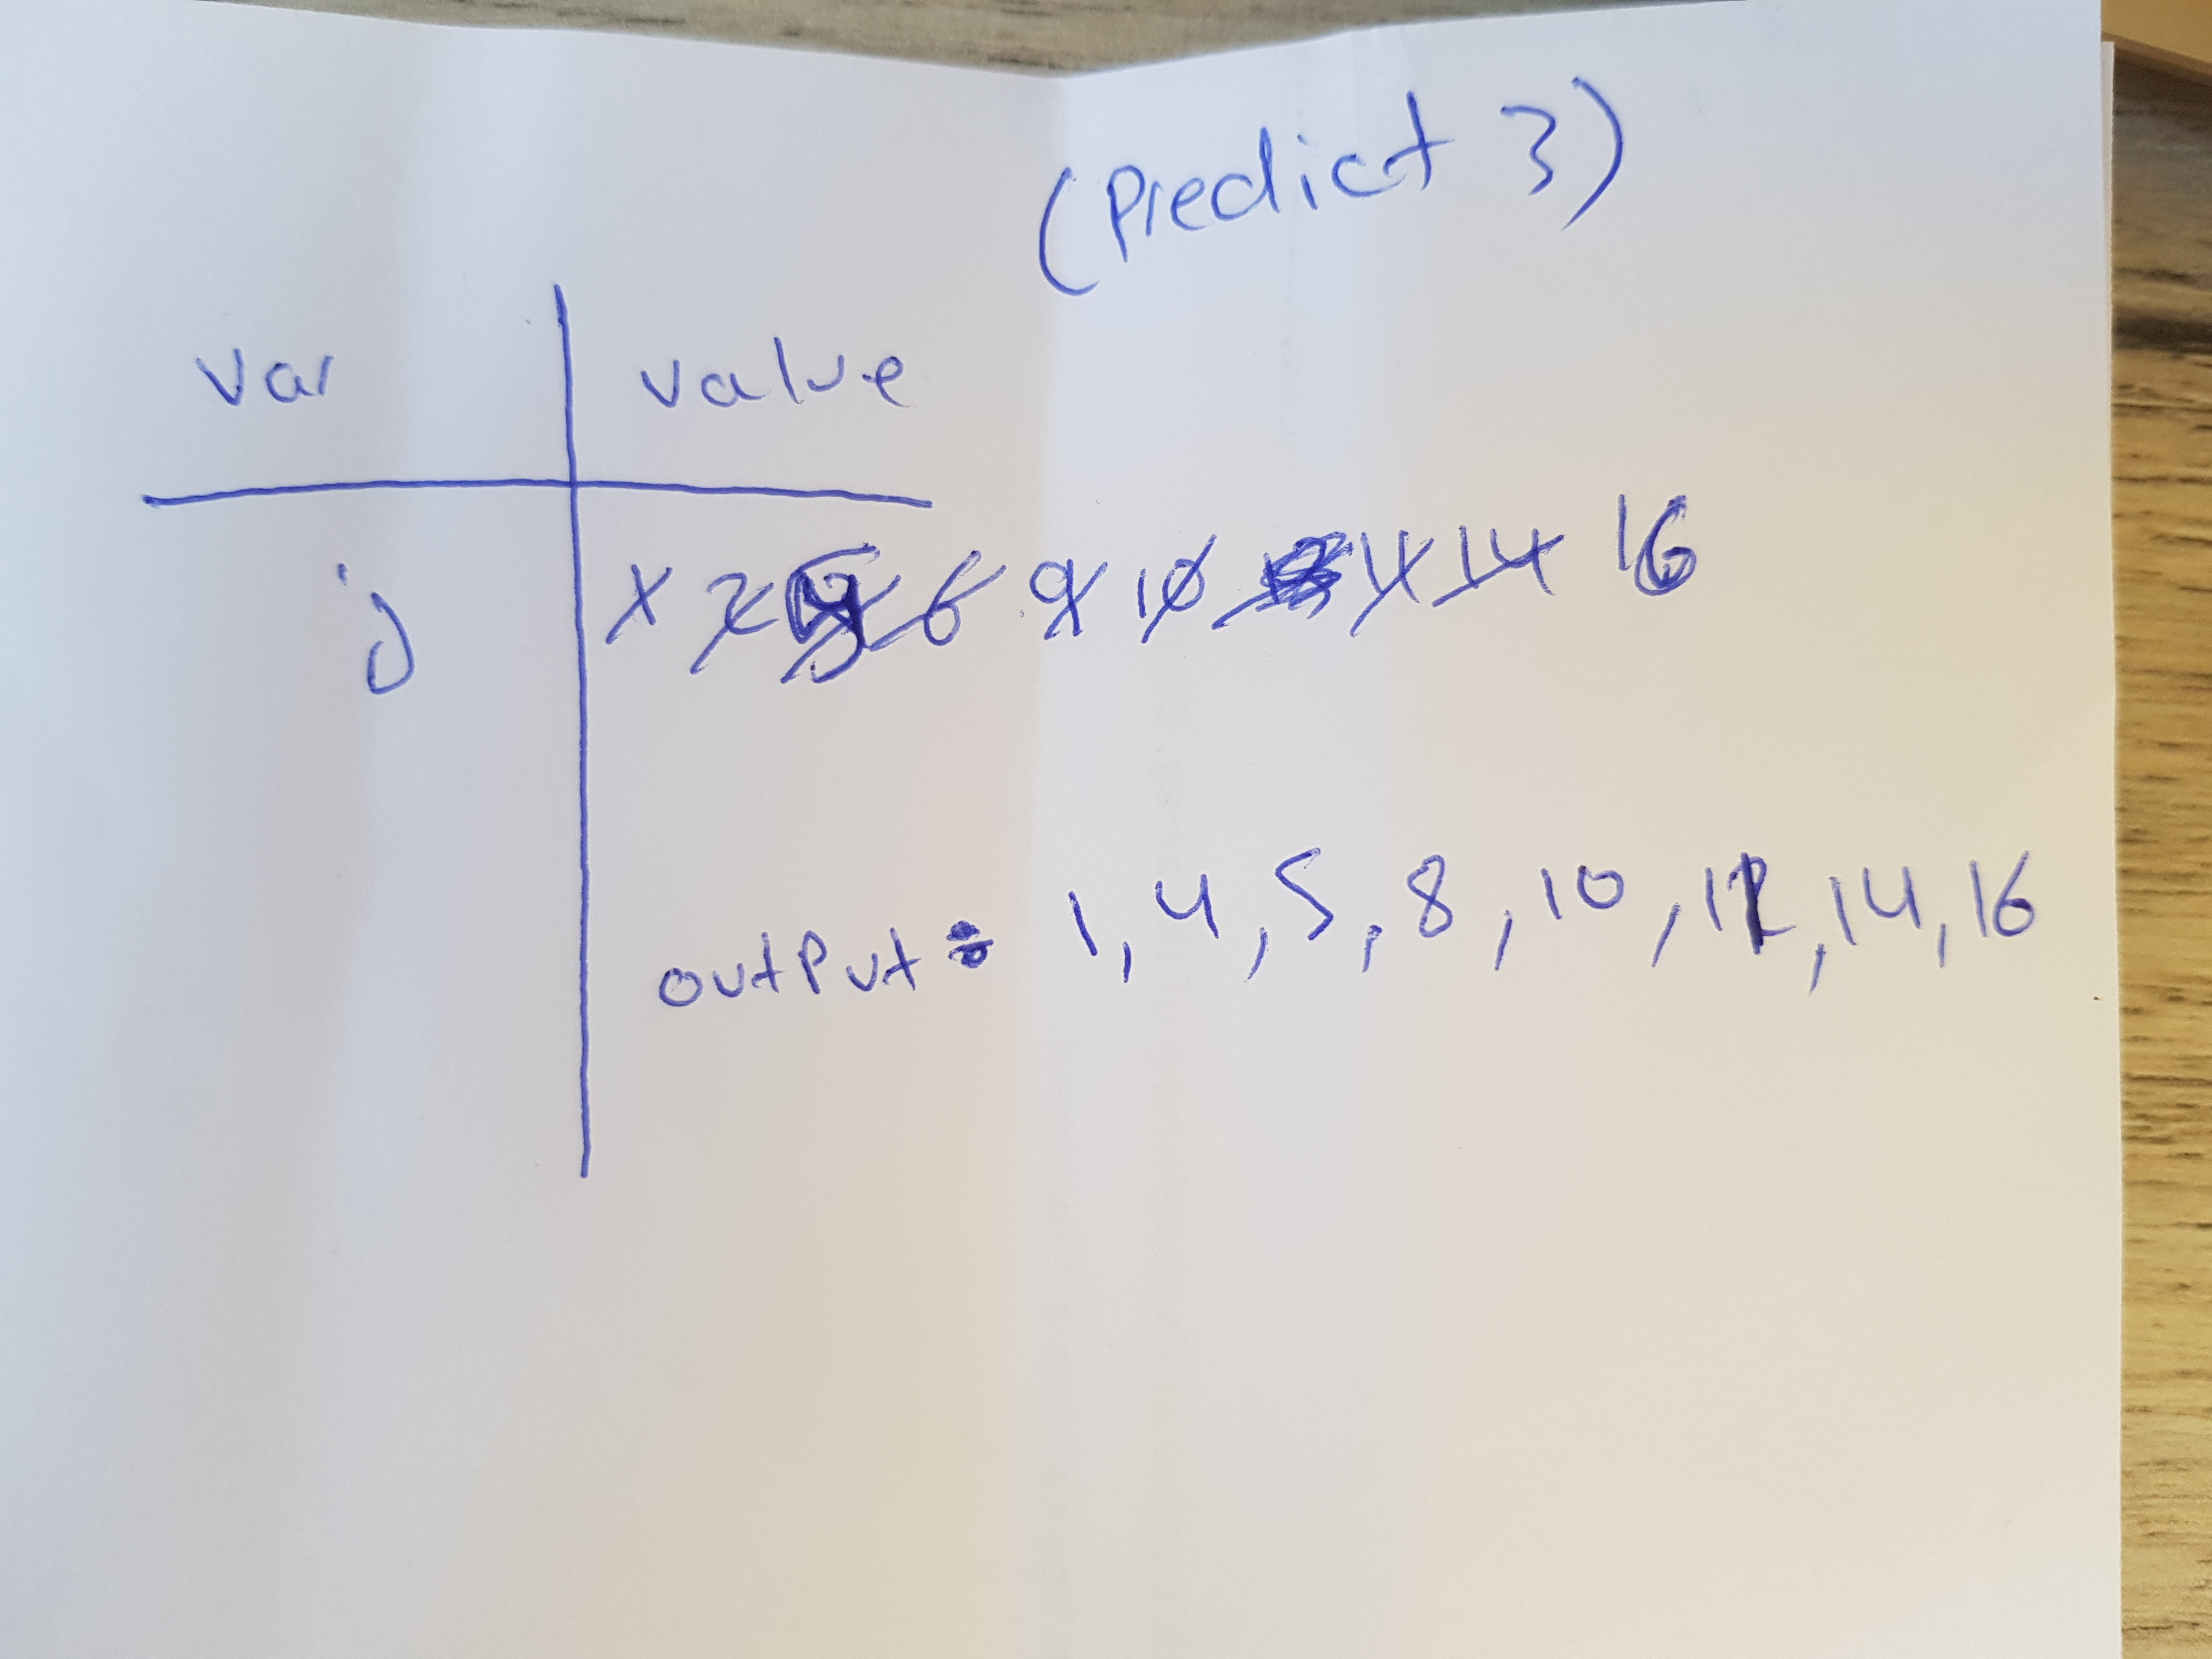 (Predict 3)
var value
j 6 9 10 14 16
output: 1, 4, 5, 8, 10, 12, 14, 16